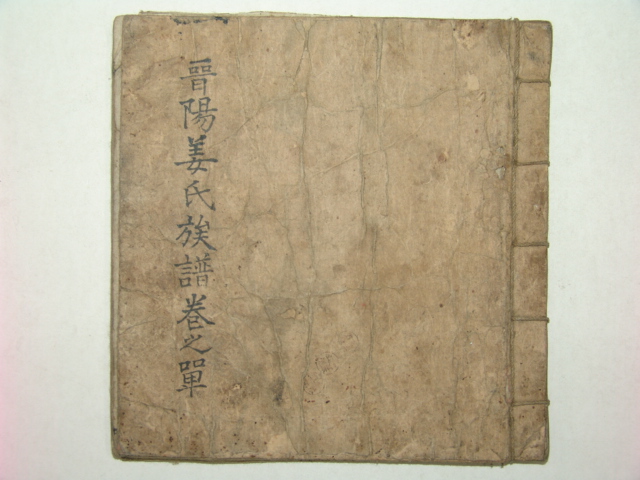 晉陽姜氏族譜卷之單